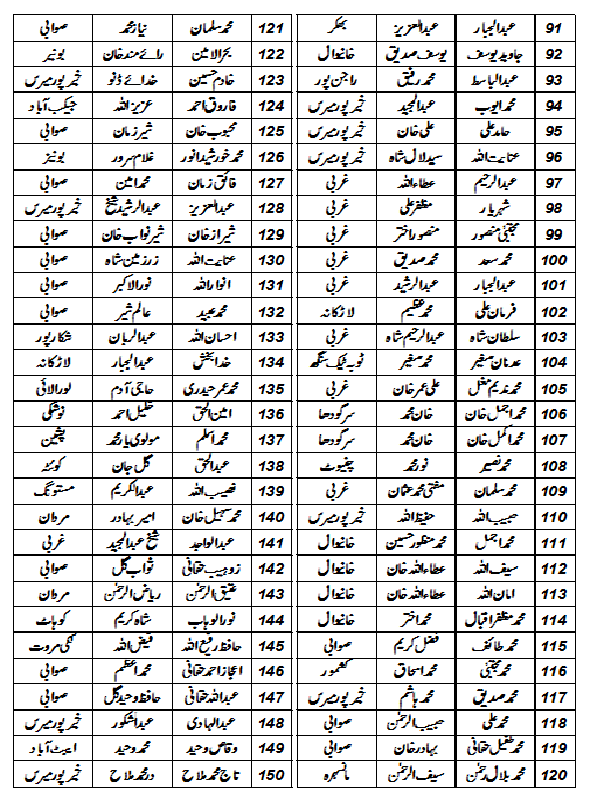 91 عبدالجبار عبدالعزیز بھکر
92 جاوید یوسف یوسف صدیق خانیوال
93 عبدالباسط محمد رفیق راجن پور
94 محمد ایوب عبدالمجید خیرپورمیرس
95 حامد علی علی خان خیرپورمیرس
96 عنایت اللہ سید لال شاہ خیرپورمیرس
97 عبدالرحیم عطاءاللہ غربی
98 شہریار مظفرعلی غربی
99 مجتبیٰ منصور منصور اختر غربی
100 محمد سعد محمد صدیق غربی
101 عبدالجبار عبدالرشید غربی
102 فرمان علی محمد عظیم لاڑکانہ
103 سلطان شاہ عبدالرحیم شاہ غربی
104 عدنان صغیر محمد صغیر ٹوبہ ٹیک سنگھ
105 محمد ندیم مغل علی عمر خان غربی
106 محمد اجمل خان خان محمد سرگودھا
107 محمد اکمل خان خان محمد سرگودھا
108 محمد نصیر نور محمد چنیوٹ
109 محمد سلمان مفتی محمد عثمان غربی
110 حبیب اللہ حفیظ اللہ خیرپورمیرس
111 محمد اجمل محمد منظور حسین خانیوال
112 سیف اللہ عطاءاللہ خان خانیوال
113 امان اللہ عطاءاللہ خان خانیوال
114 محمد مظفر اقبال محمد اختر خانیوال
115 محمد طائف فضل کریم صوابی
116 محمد مجتبیٰ محمد اسحاق کشمور
117 محمد صدیق محمد ہاشم خیرپورمیرس
118 محمد علی حبیب الرحمٰن صوابی
119 محمد طفیل حقانی بہادر خان صوابی
120 محمد بلال رحمٰن سیف الرحمٰن مانسہرہ
121 محمد سلمان نیاز محمد صوابی
122 بحرالامین رائے مند خان بونیر
123 خادم حسین خدائے ڈنو خیرپورمیرس
124 فاروق احمد عزیز اللہ جیکب آباد
125 محبوب خان شیر زمان صوابی
126 محمد خورشید انور غلام سرور بونیر
127 فائق زمان محمد امین صوابی
128 عبدالعزیز عبدالرشید شیخ خیرپورمیرس
129 شیراز خان شیر نواب خان صوابی
130 عنایت اللہ زرزمین شاہ صوابی
131 انواراللہ نورالاکبر صوابی
132 محمد عبید عالم شیر صوابی
133 احسان اللہ عبدالریان شکارپور
134 خدا بخش عبدالجبار لاڑکانہ
135 محمد عمر حیدری حاجی آدم لورالائی
136 امین الحق خلیل احمد نوشکی
137 محمد اسلم مولوی یار محمد پشین
138 عبدالحق گل جان کوئٹہ
139 نصیب اللہ عبدالکریم مستونگ
140 محمد سہیل خان امیر بہادر مردان
141 عبدالواحد شیخ عبدالمجید غربی
142 زوہیب حقانی ثواب گل صوابی
143 عتیق الرحمٰن ریاض الرحمٰن مردان
144 نورالوہاب شاہ کریم کوہاٹ
145 حافظ رفیع اللہ فیض اللہ لکی مروت
146 اعجاز احمد حقانی محمد اعظم صوابی
147 عبداللہ حقانی حافظ وحید گل صوابی
148 عبدالہادی عبدالشکور خیرپورمیرس
149 وقاص وحید محمد وحید ایبٹ آباد
150 تاج محمد ملاح در محمد ملاح خیرپورمیرس